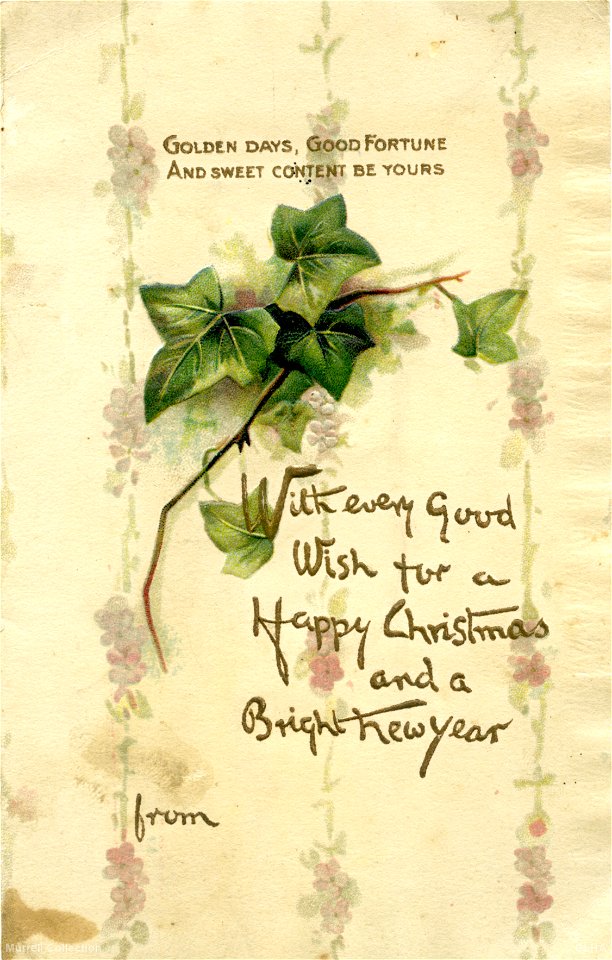 GOLDEN DAYS, GOOD FORTUNE
AND SWEET CONTENT BE YOURS
With every Good
Wish for a
Happy Christmas
and a
Bright New Year
from
Murrell Collection